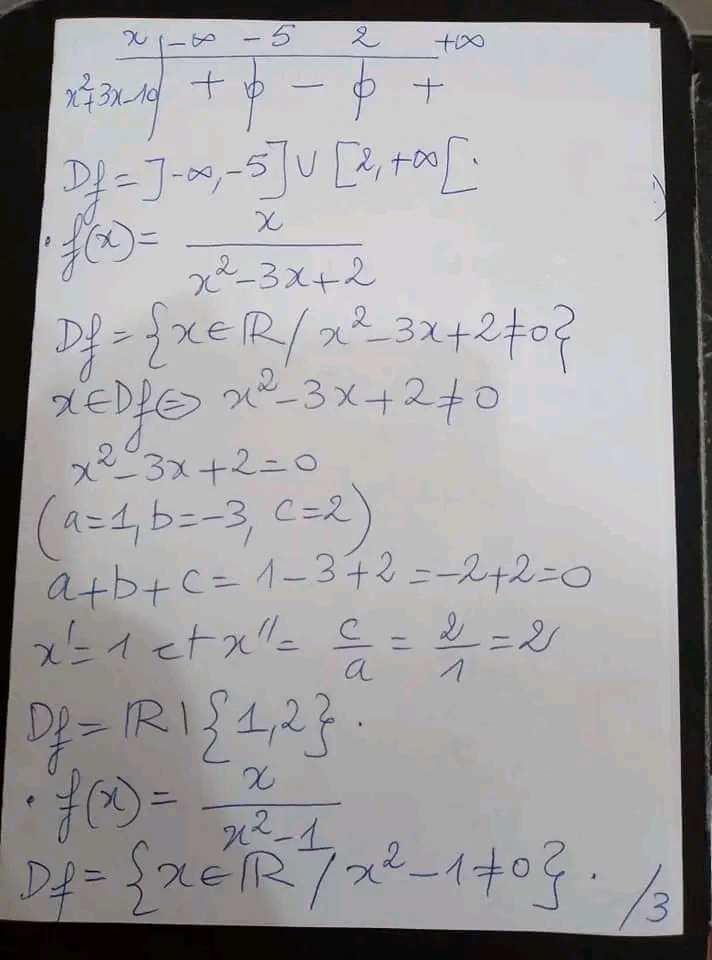 x -∞ -5 2 +∞
x²+3x-10 + 0 - 0 +
Df = ]-∞,-5] ∪ [2,+∞[.
• f(x) = x / (x²-3x+2)
Df = {x∈ℝ / x²-3x+2≠0}
x∈Df ⇔ x²-3x+2≠0
x²-3x+2=0
(a=1, b=-3, c=2)
a+b+c = 1-3+2 = -2+2=0
x'=1 et x''= c/a = 2/1 = 2
Df = ℝ\{1,2}.
• f(x) = x / (x²-1)
Df = {x∈ℝ / x²-1≠0}.
/3